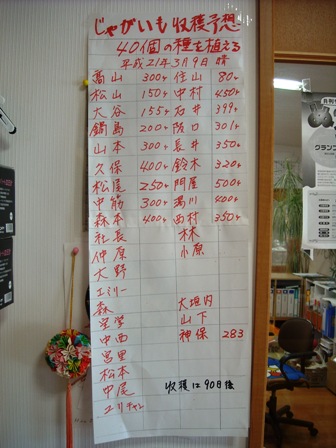 じゃがいも収穫予想
40個の種を植える
平成21年3月9日 晴
高山 300ヶ 住山 80ヶ
松山 150ヶ 中村 450ヶ
大谷 155ヶ 石井 399ヶ
鍋島 200ヶ 阪口 301ヶ
山本 300ヶ 長井 350ヶ
久保 400ヶ 鈴木 320ヶ
松尾 250ヶ 問屋 500ヶ
中筋 300ヶ 湯川 400ヶ
森本 400ヶ 西村 350ヶ
社長 林
仲原 小原
大野
エミリー
森 大垣内
山下
中西 神保 283
宮里
松本
中尾 収穫は90日後
ユリチャン